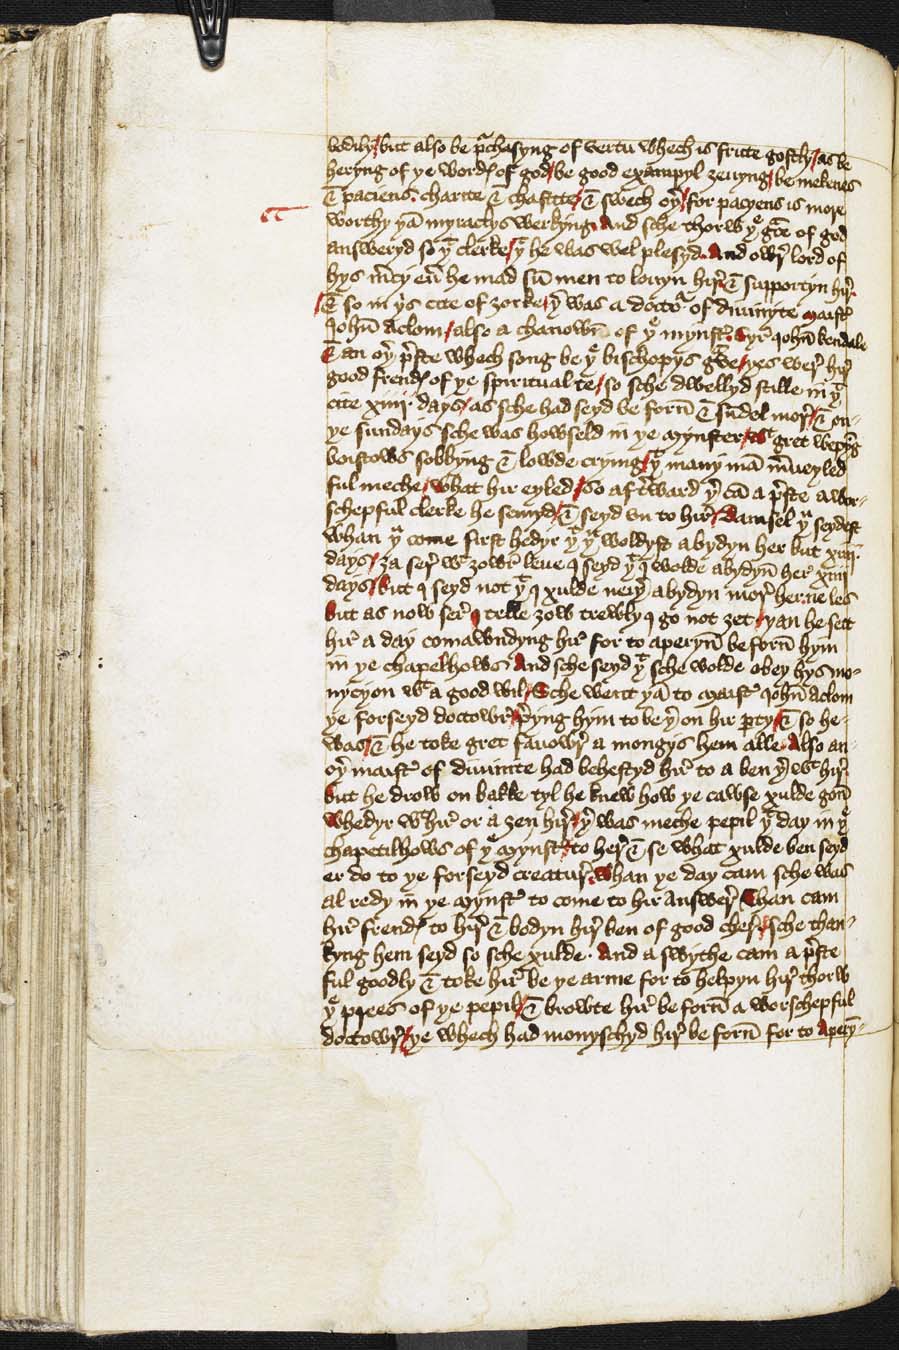 bodily / but also be pᵃchasyng of vertu whech is frute gostly / as be
heryng of þe word of god / be good exampyl ȝeuyng / be mekenes
& paciens / charite & chastite / & swech oþ̉ / for pacyens is more
worthy þā myraclys werkyng. And sche thorw þᵉ gᵃce of god
answeryd so þᵗ clerke / þᵗ he was wel plesyd. And owr̉ lord of
hys m̉cy eū he mad sū men to louyn hir̉ & supportyn hir̉.
/ & so in þis cite of ȝorke / þ̉ was a doctoᵘr of diuinyte maist̉
John̄ aclom / also a chanown̄ of þᵉ mynst̉. Syr̉ John̄ kendale
& an oþ̉ p̉ste whech song be þᵉ bischopys gᵃue / þes wer̉ hir̉
good frend of þe spiritualte / so sche dwellyd stille in þᵗ
cite xiiij days / as sche had seyd be forn̄ & sūdel mor̉ / & on
þe sundays sche was howseld in þe mynster / wᵗ gret wepyng
boistows sobbyng & lowde crying / þᵗ many mā m̉ueyled
ful meche / what hir eyled / so aft̉ward þ̉ cā a p̉ste a wor-
schepful clerke he semyd / & seyd vn to hir̉ / Damsel þᵘ seydest
whan þᵘ come first hedyr þᵗ þᵘ woldyst abydyn her but xiiij
days / ȝa ser̉ wᵗ ȝowr̉ leue I seyd þᵗ I wolde abydyn̄ her̉ xiiij
days / but I seyd not þᵗ I xulde neiþ̉ abydyn mor̉ her ne les
but as now ser̉ I telle ȝow trewly I go not ȝet / þan he sett
hir̉ a day comawndyng hir̉ for to aperyn̄ be forn̄ hym
in þe chapelhows. And sche seyd þᵗ sche wolde obey hys mo-
nycyon wᵗ a good wil / Sche went þā to maist̉ John̄ aclom
þe forseyd doctowr̉ / p̉yng hym to be þ̉ on hir pty / & so he
was / & he toke gret fauowr̉ a mongys hem alle. Also an
oþ̉ maist̉ of diuinite had behestyd hir̉ to a ben þ̉ wᵗ hir̉
but he drow on bakke tyl he knew how þe cawse xulde gon̄
whedyr wᵗ hir̉ or a ȝen hir̉ / þ̉ was meche pepil þᵗ day in þᵉ
chapetilhows of þᵉ mynst̉ / to her̉ & se what xulde ben seyd
er do to þe forseyd creatur̉. Whan þe day cam sche was
al redy in þe mynst̉ to come to hir answer̉ Than cam
hir̉ frend to hir̉ & bodyn hir̉ ben of good cher̉ / sche than-
kyng hem seyd so sche xulde. And a swythe cam a p̉ste
ful goodly & toke hir̉ be þe arme for to helpyn hir̉ thorw
þᵉ prees of þe pepil / & browte hir̉ be forn̄ a worschepful
doctowr̉ / þe whech had monyschyd hir̉ be forn̄ for to apery-